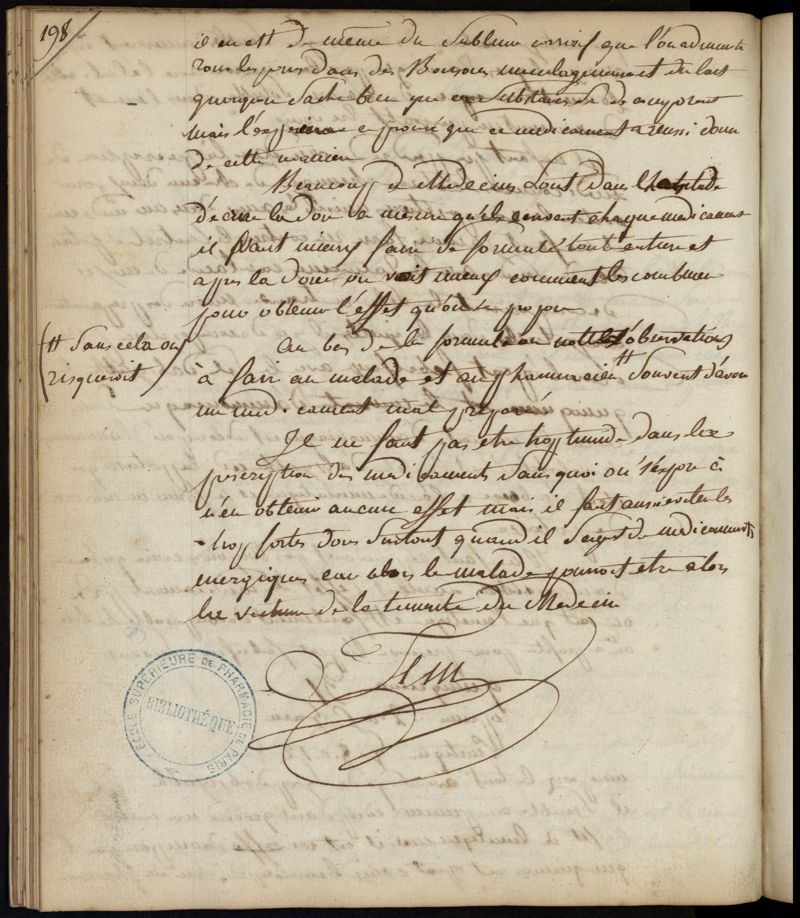 198
il en est de même du Sublimé corrosif que l'on administre
tous les jours dans des Boissons mucilagineuses et du lait
quoiqu'on Sache bien que ces Substances le decomposent
mais l'experience a prouvé que ce medicament a reussi donné
de cette maniere
Beaucoup de Medecins Sont dans l'habitude
d'écrire la Dose a mesure qu'ils ecrivent chaque medicament
il vaut mieux faire la formule tout entiere et
apres la Doser on voit mieux comment les combiner
pour obtenir l'effet qu'on se propose
au bas de la formule on met les observations
à faire au malade et au pharmacien # Souvent d'avoir
un medicament mal préparé
(# Sans cela on
risqueroit
Il ne faut pas etre trop timide dans la
prescription des medicaments Sans quoi on s'expose à
n'en obtenir aucun effet mais il faut aussi eviter les
trop fortes doses Surtout quand il S'agit de medicaments
energiques car alors le malade pourroit etre alors
la victime de la temerité du Medecin
fin
ÉCOLE SUPÉRIEURE DE PHARMACIE DE PARIS
BIBLIOTHÉQUE